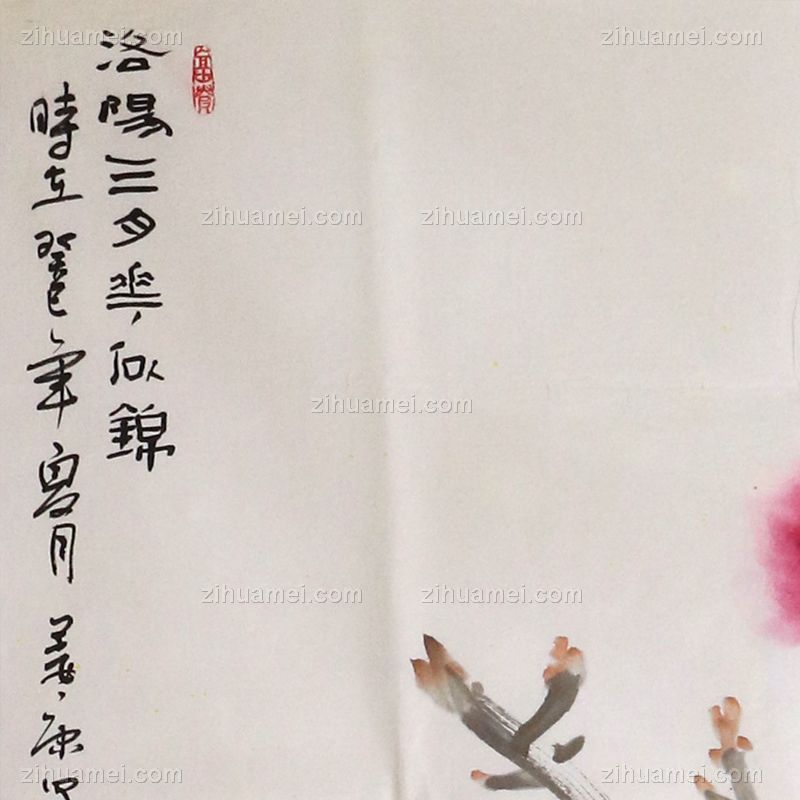 洛陽三月花似錦
時在癸巳年夏月
zihuamei.com
zihuamei.com
zihuamei.com
zihuamei.com
zihuamei.com
zihuamei.com
zihuamei.com
zihuamei.com
zihuamei.com
zihuamei.com
zihuamei.com